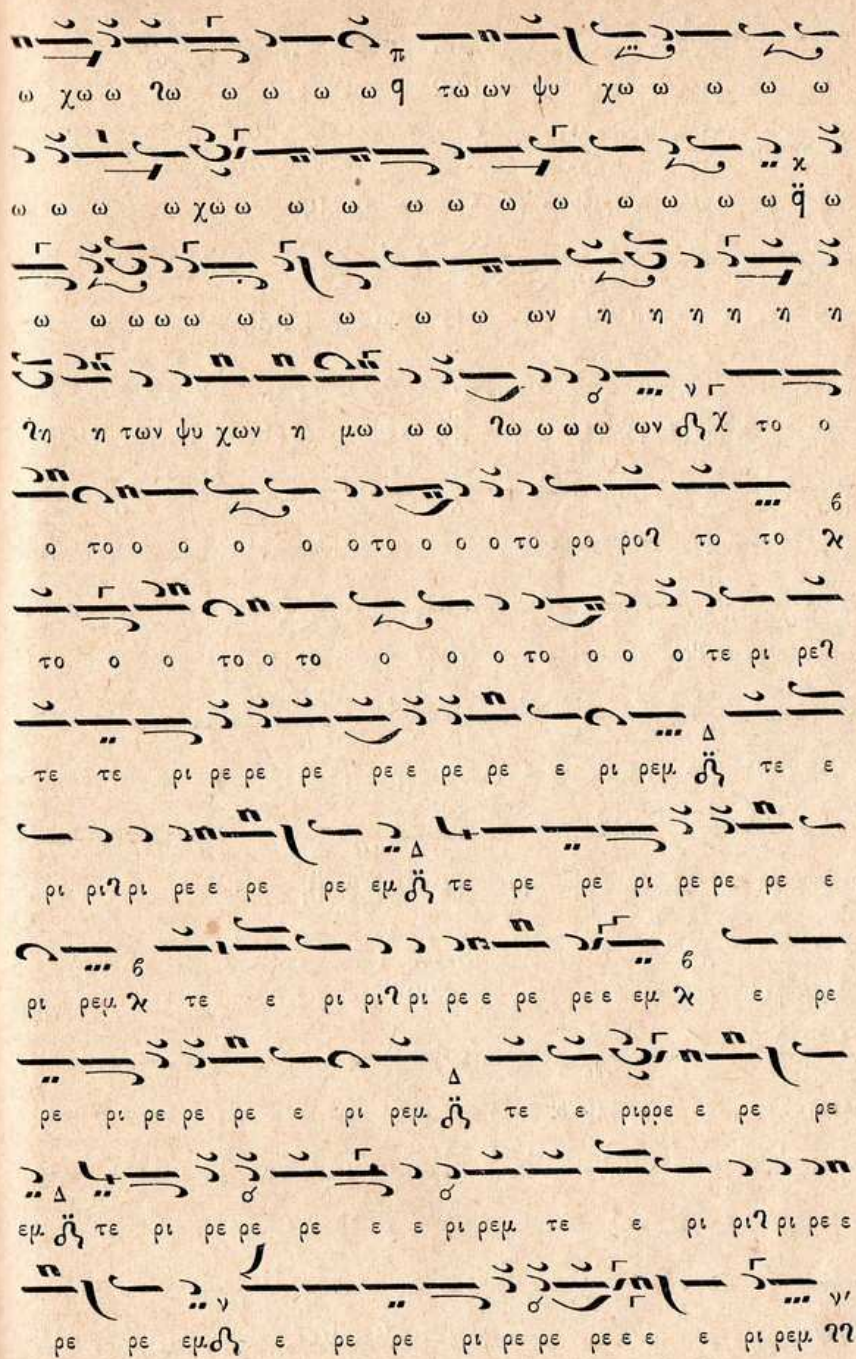 ω χω ω ω ω ω ω ω π τω ων ψυ χω ω ω ω ω
ω ω ω ω χω ω ω ω ω ω ω ω ω ω ω ω χ ω
ω ω ω ω ω ω ω ω ω ω ων η η η η η η
η η των ψυ χων η μω ω ω ω ω ω ω ων ν χ το ο
ο το ο ο ο ο ο το ο ο ο το ρο ρο το το
το ο ο το ο το ο ο ο το ο ο ο τε ρι ρε
τε τε ρι ρε ρε ρε ρε ε ρε ρε ε ρι ρεμ Δ τε ε
ρι ρι ρι ρε ε ρε ρε εμ Δ τε ρε ρε ρι ρε ρε ρε ε
ρι ρεμ τε ε ρι ρι ρι ρε ε ρε ρε ε εμ ε ρε
ρε ρι ρε ρε ρε ε ρι ρεμ Δ τε ε ε ρε ρε
εμ Δ τε ρι ρε ρε ρε ε ε ρι ρεμ τε ε ρι ρι ρι ρε ε
ρε ρε εμ ν ε ρε ρε ρι ρε ρε ρε ε ε ε ρι ρεμ ν'